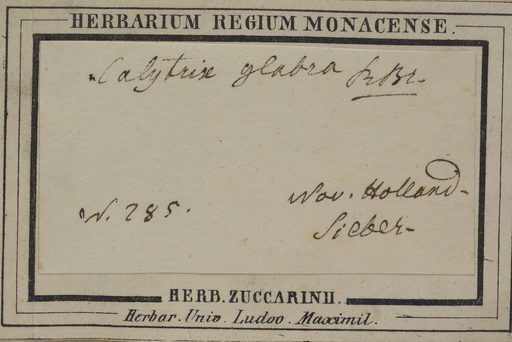 HERBARIUM REGIUM MONACENSE.
Calytrix glabra RBr.
Nov. Holland.
N. 285.
Sieber.
HERB. ZUCCARINII.
Herbar. Univ. Ludov. Maximil.